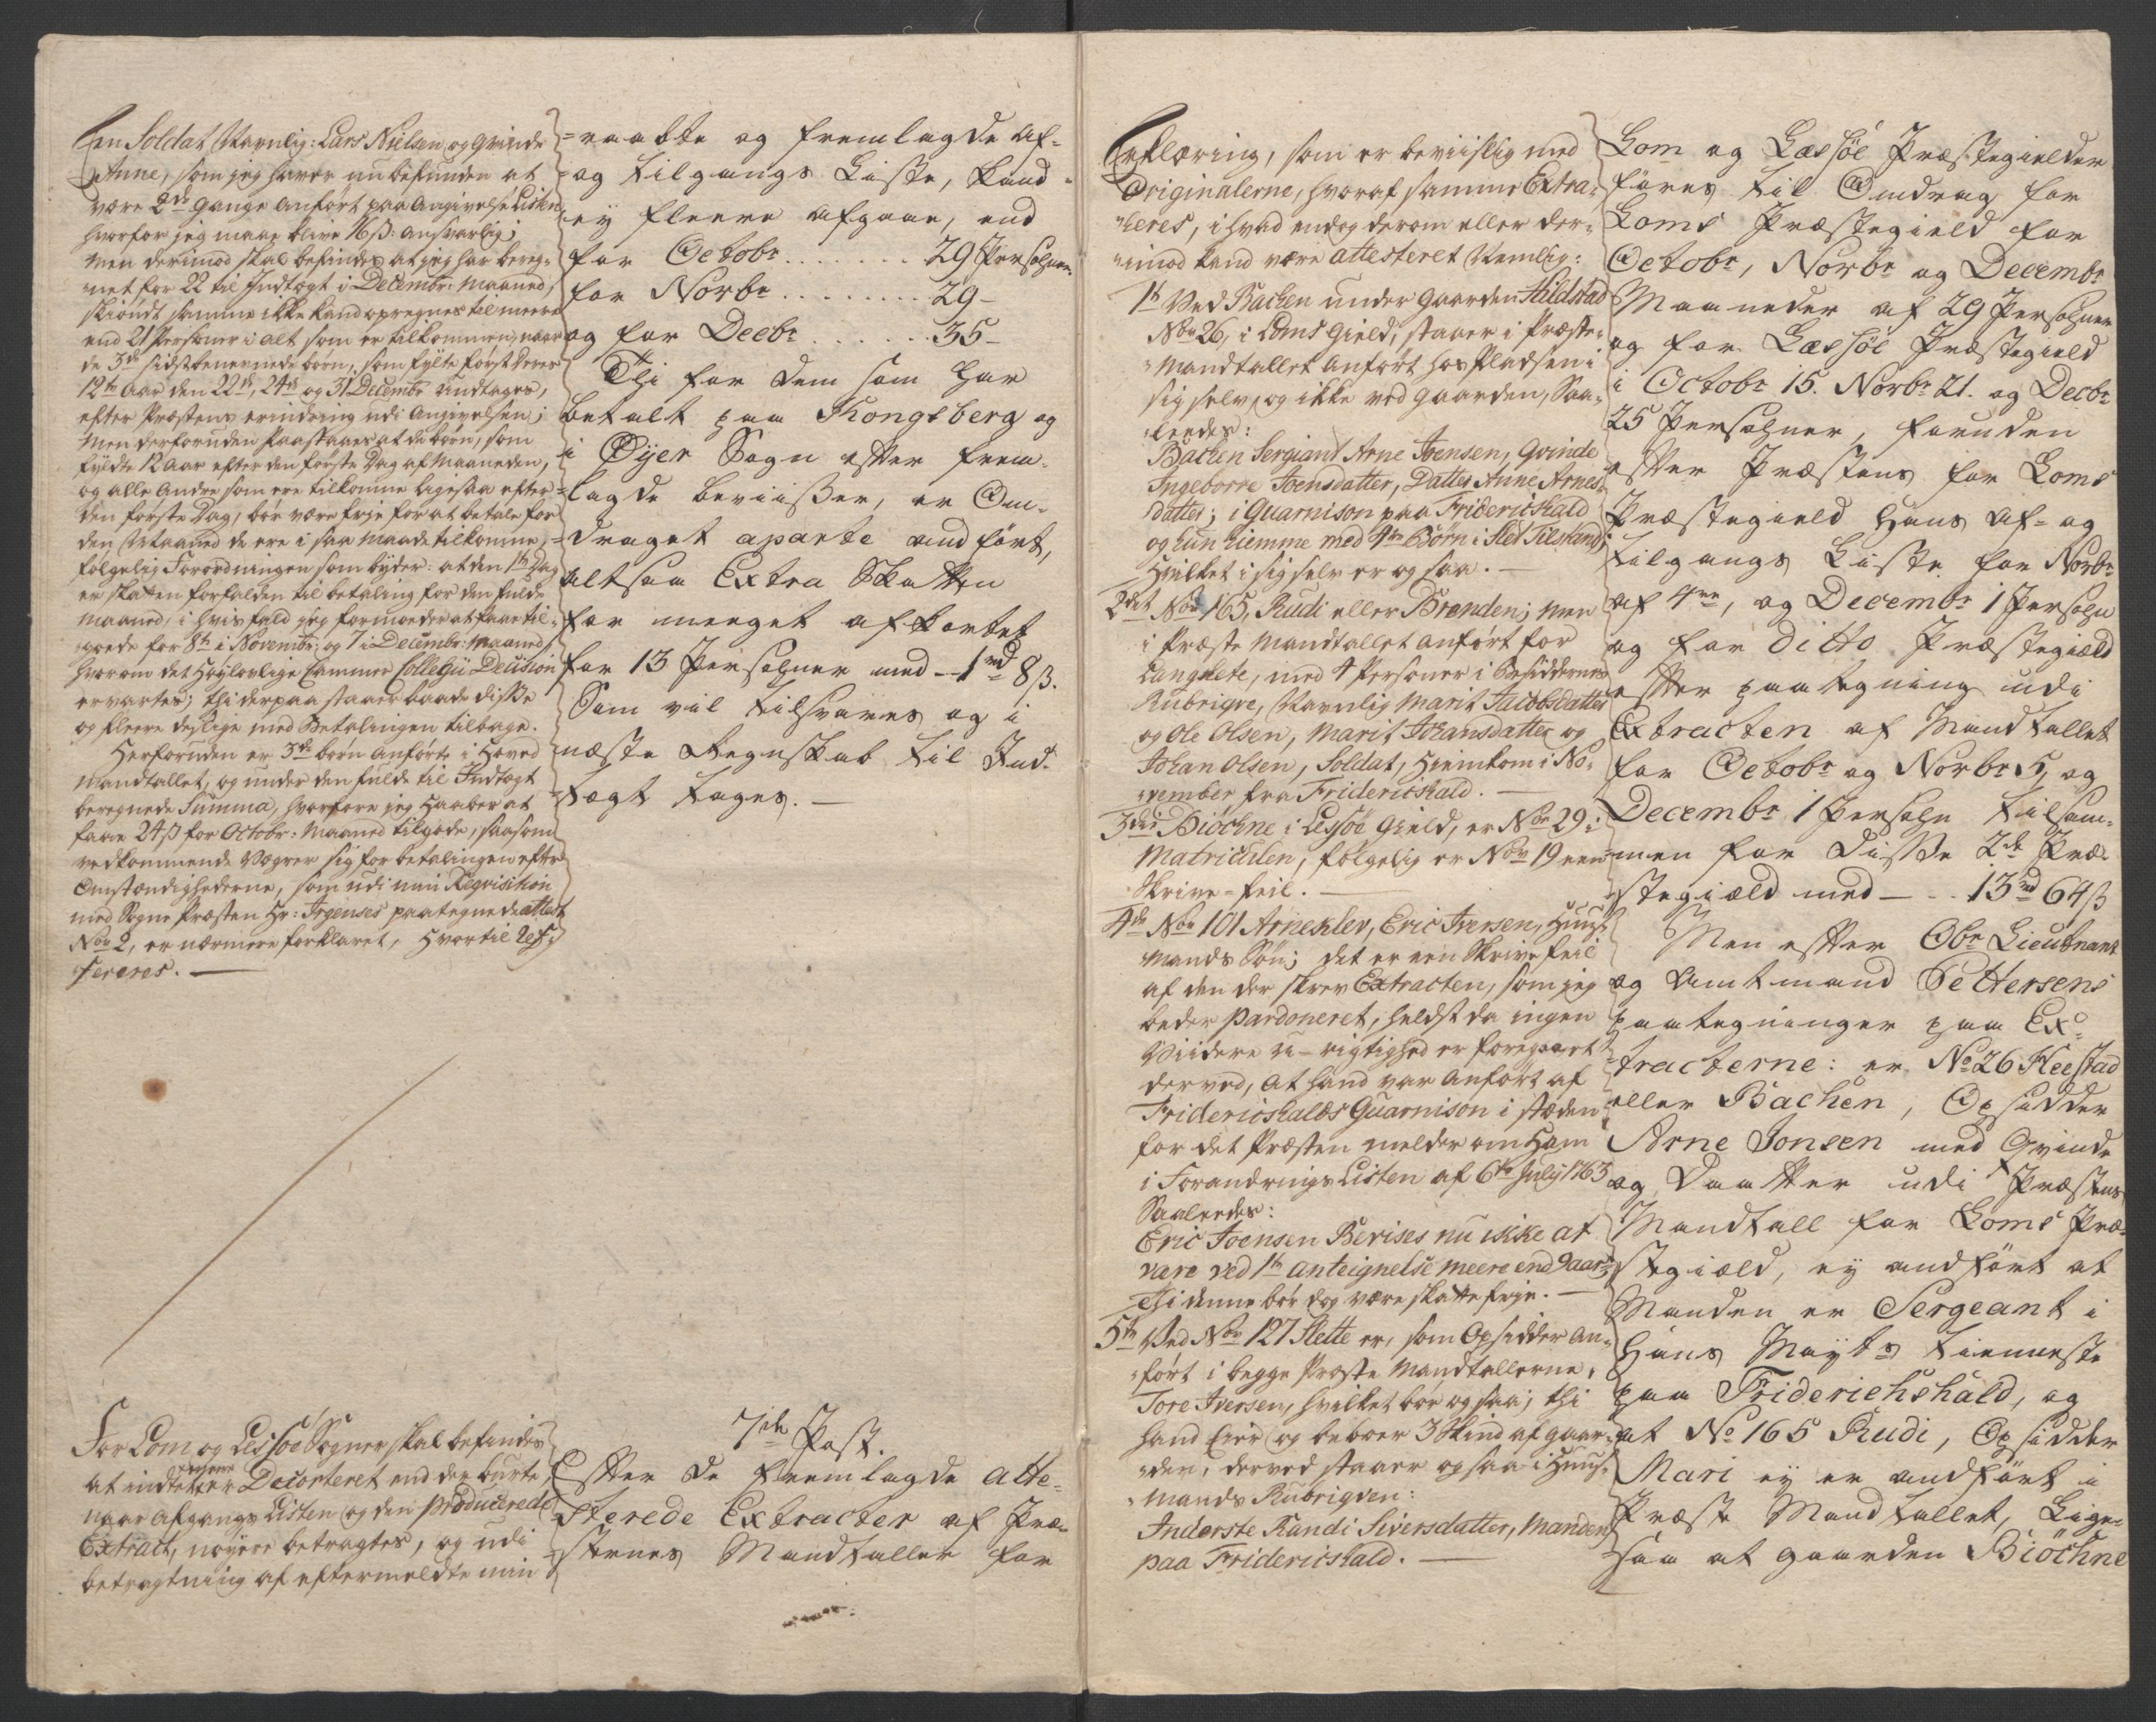 Een Soldat Navnlig: Lars Nielsen og Qvinde
Anne, som jeg haver nu befunden at
være 2de gange anført paa Angivelse Listen,
hvorfor jeg maae blive 16 ß: ansvarlig;
Men derimod skal befindes at jeg har bereg-
-net for 22 til Indtægt i Decembr: Maaned,
skiøndt samme ikke kand opregnes til meere
end 21 Persohner i alt som er tilkommen, naar
de 3de sidstbenævnede børn, som fylte først deres
12te Aar den 22de, 24de og 31 Decembr undtages,
efter Præstens erindring udi Angivelsen;
Men desforuden paastaaes at de børn, som
fyldte 12 Aar efter den første Dag af Maaneden,
og alle Andre som ere tilkomne ligesaa efter
den første Dag, bør være frie for at betale for
den Maaned de ere i saa maade tilkomne,
følgelig Forordningen som byder: at den 1te Dag
er skatten forfalden til betaling for den fulde
Maaned, i hvis fald jeg formoeder at faae til-
-gode for 8te i Novembr: og 7 i Decembr: Maaned,
hvorom det Høylovlige Cammer Collegii Decision
ervartes; thi derpaa staaer baade disse
og fleere deslige med Betalingen tilbage.
Herforuden er 3de børn anførte i Hoved
Mandtallet, og under den fulde til Indtægt
beregnede Summa, hvorfore jeg haaber at
faae 24 ß for Octobr: Maaned tilgode, saasom
vedkommende vægrer sig for betalingen efter
Omstændighederne, som udi min Reqvisition
med Sogne Præsten Hr: Irgenses paategnede attest
No 2, er nærmere forklaret, Hvortil ref-
-fereres. —
For Lom og Lessøe Sogner skal befindes
at indtet meere er Decorteret end der burte,
naar Afgangs Listen og den producerede
Extract, nøyere betragtes, og udi
betragtning af eftermeldte min
-raabte og fremlagde Af-
-og tilgangs Liste, kand
ey fleere afgaae, end
for Octobr ....... 29 Persohner
for Novbr ........ 29 -
og for Decbr ...... 35 -
Thi for dem som har
betalt paa Kongsberg og
i Øyer Sogn efter frem-
-lagde beviisser, er Om-
-draget aparte andført,
altsaa Extra Skatten
for meeget afkortet
for 13 Persohner med — 1 rd 8 ß.
Som vil tilsvares og i
næste Regnskab til Ind-
-tægt tages. —
7de Post.
Efter de fremlagde atte-
-sterede Extracter af Præ-
-sternes Mandtaller for
Erklæring, som er beviislig med
Originalerne, hvoraf samme Extra-
-heres, i hvad endog derom eller der-
-imod kand være attesteret Nemlig:
1te Ved Bachen under Gaarden Hildstad
No 26, i Loms Gield, staaer i Præste-
-Mandtallet anført hos Pladsen i
sig selv, og ikke ved Gaarden, Saa-
-leedes:
Bachen Sergiant Arne Joensen, Qvinde
Ingeborre Joensdatter, Datter Anne Arnes-
datter; i Guarnison paa Friderichshald
og hun hiemme med 4re Børn i Slet Tilstand;
Hvilket i sig selv er og saa. —
2det No 165, Rudi eller Brenden; men
i Præste Mandtallet anført for
Langlete, med 4 Personer i Besiddernes
Rubriqve, Navnlig Marit Jacobsdatter
og Ole Olsen, Marit Johansdatter og
Johan Olsen, Soldat, Hiemkom i No-
-vember fra Friderichshald. —
3die Biöchne i Lessøe Gield, er No 29 i
Matriculen, følgelig er No 19 een
Skrive-feil. —
4de No 101 Arneklev, Eric Iversen, Huus-
Mands Søn; det er een Skrive feil
af den der skrev Extracten, som jeg
beder pardoneret, heldst da ingen
Viidere U-rigtighed er foregaaet
derved, at hand var anført af
Friderichshalds Guarnison i stæden
for det Præsten melder om Ham
i Forandrings Listen af 6te July 1763
Saaleedes:
Eric Joensen Bevises nu ikke at
være ved 1te anteignelse meere end 9 aar;
Thi denne bør dog være skatte frie. —
5te Ved No 127 Slette er, som Opsidder an-
-ført i begge Præste Mandtallerne,
Tore Iversen, hvilket bør og saa; thi
hand Eier og beboer 3 Skind af Gaar-
-den, derved staaer og saa i Huus-
-mands Rubriqven:
Inderste Randi Siversdatter, Manden
paa Friderichshald. —
Lom og Læssøe Præstegielder
føres til Omdrag for
Loms Præstegield for
Octobr, Novbr og Decembr
Maaneder af 29 Persohner
og for Læssøe Præstegield
i Octobr 15. Novbr 21. og Decbr
25 Persohner, foruden
efter Præstens for Loms
Præstegield hans Af- og
tilgangs Liste for Novbr
af 4re, og Decembr 1 Persohn
og for ditto Præstegiæld
efter paategning udi
Extracten af Mandtallet
for Octobr og Novbr 5, og
Decembr 1 Persohn tilsam-
-men for disse 2de Præ-
-stegiæld med — .. 13 rd 64 ß
Men efter Obr Lieutnant
og Amtmand Pettersens
paategninger paa Ex-
-tracterne: er No 26 Heestad
eller Bachen, Opsidder
Arne Jonsen med Qvinde
og Daatter udi Præstens
Mandtall for Loms Præ-
-stegiæld, ey andført at
Manden er Sergeant i
Hans Mayts tienneste
paa Friderichshald, og
at No 165 Rudi, Opsidder
Mari ey er andført i
Præste Mandtallet, Lige-
saa at gaarden Biöchne